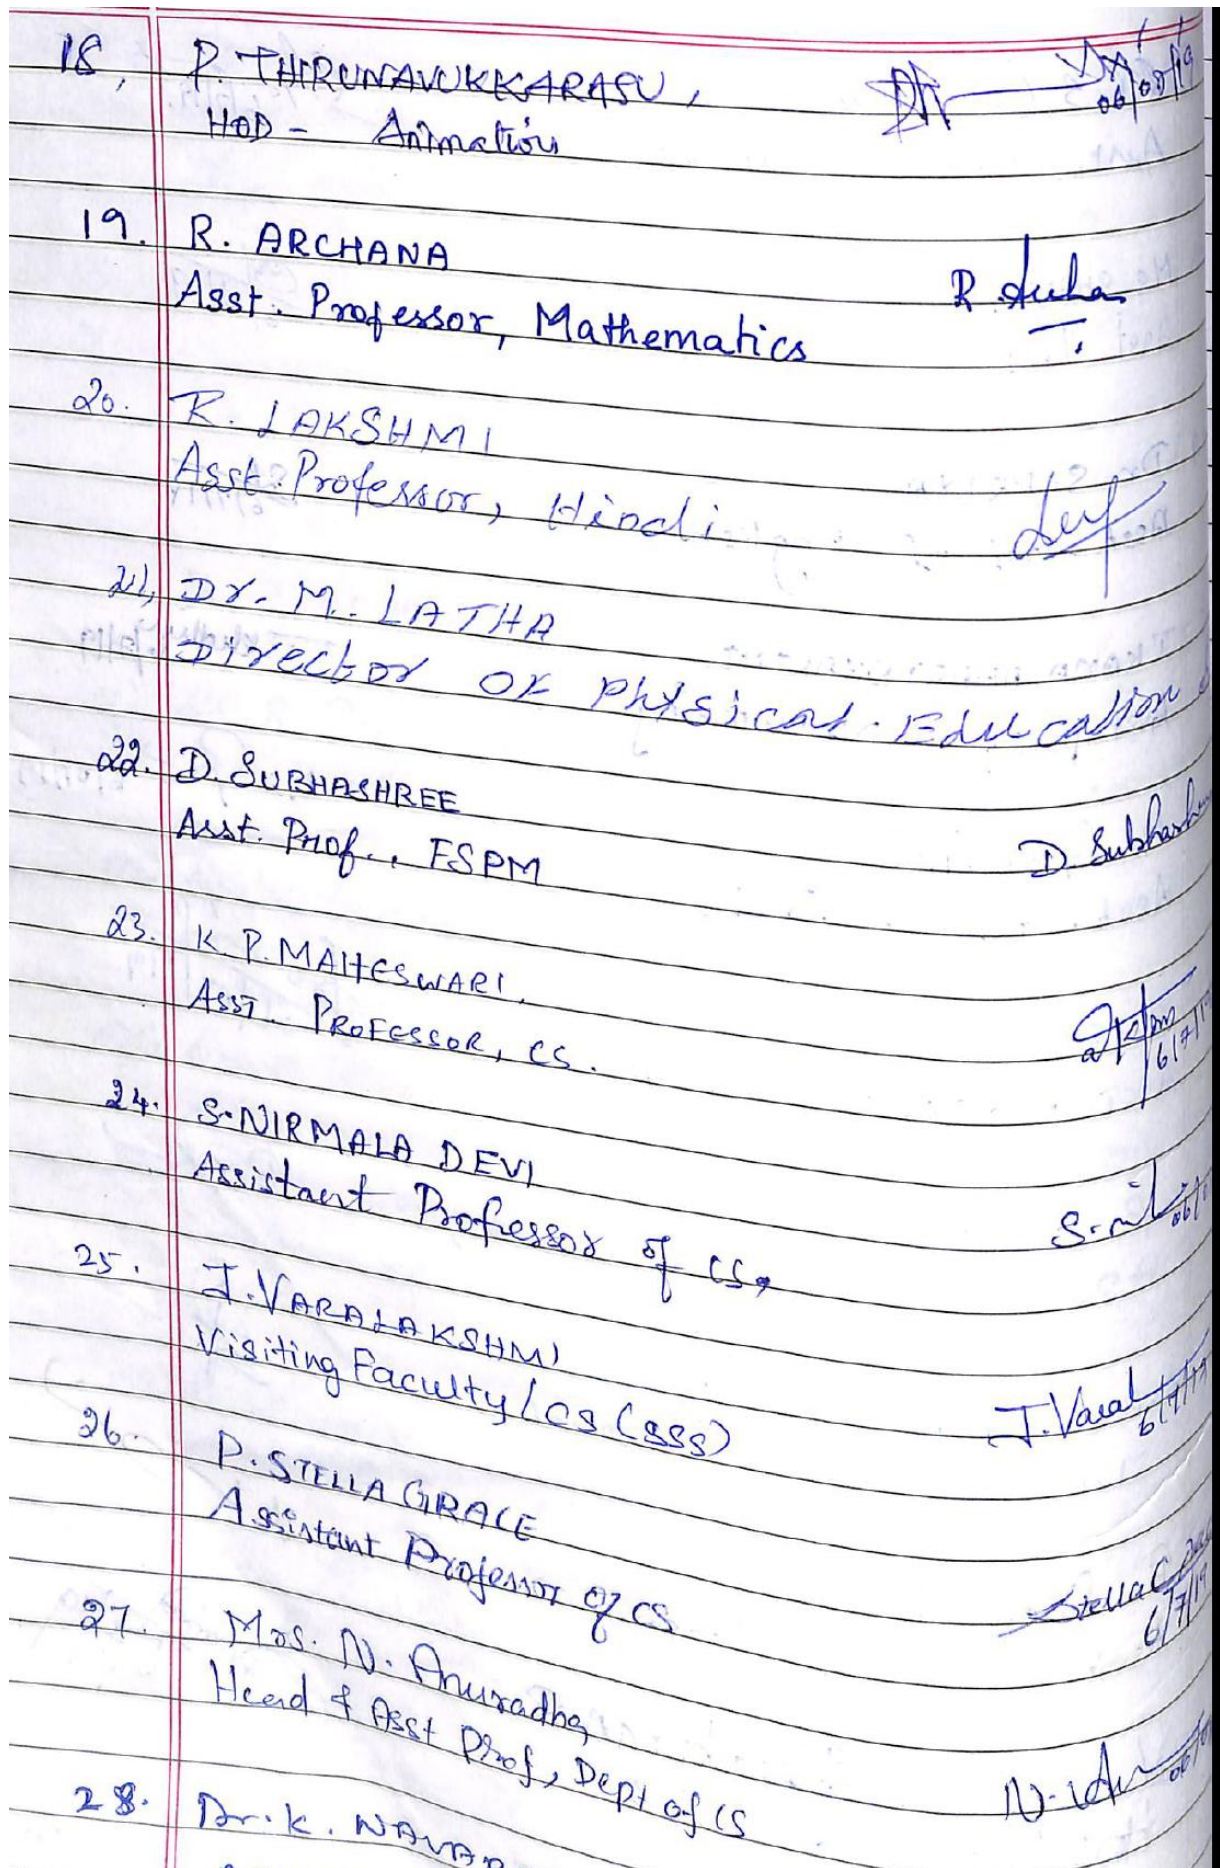 18, P. THIRUNAVUKKARASU,
06/07/19
HOD - Animation
19. R. ARCHANA
Asst. Professor, Mathematics
20. R. LAKSHMI
Asst. Professor, Hindi
21, Dr. M. LATHA
Director of Physical Education
22. D. SUBHASHREE
Asst. Prof., FSPM
D. Subhash
23. K. P. MAHESWARI,
ASST. PROFESSOR, CS.
6/7/19
24. S. NIRMALA DEVI
Assistant Professor of CS,
25. J. VARALAKSHMI
Visiting Faculty / CS (SSS)
J. Varal 6/7/19
26. P. STELLA GRACE
Assistant Professor of CS
Stella 6/7/19
27. Mrs. N. Anuradha
Head & Asst Prof, Dept of CS
28. Dr. K. NAVA